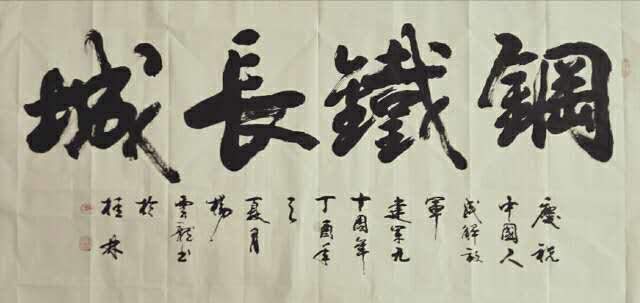 鋼鐵長城
慶祝
中國人
民解放
軍
建軍九
十周年
丁酉年
之
夏月
楊
雲龍書
於
桂林